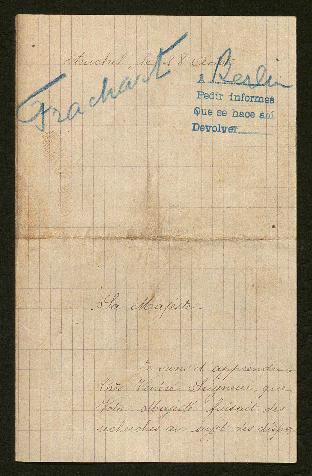 le 18
Frachart
A Berlin
Pedir informes
Que se hace así
Devolver
Sa Majesté.
Je viens d'apprendre
Vénéré Seigneur, que
Votre Majesté faisait des
recherches au sujet des dispa